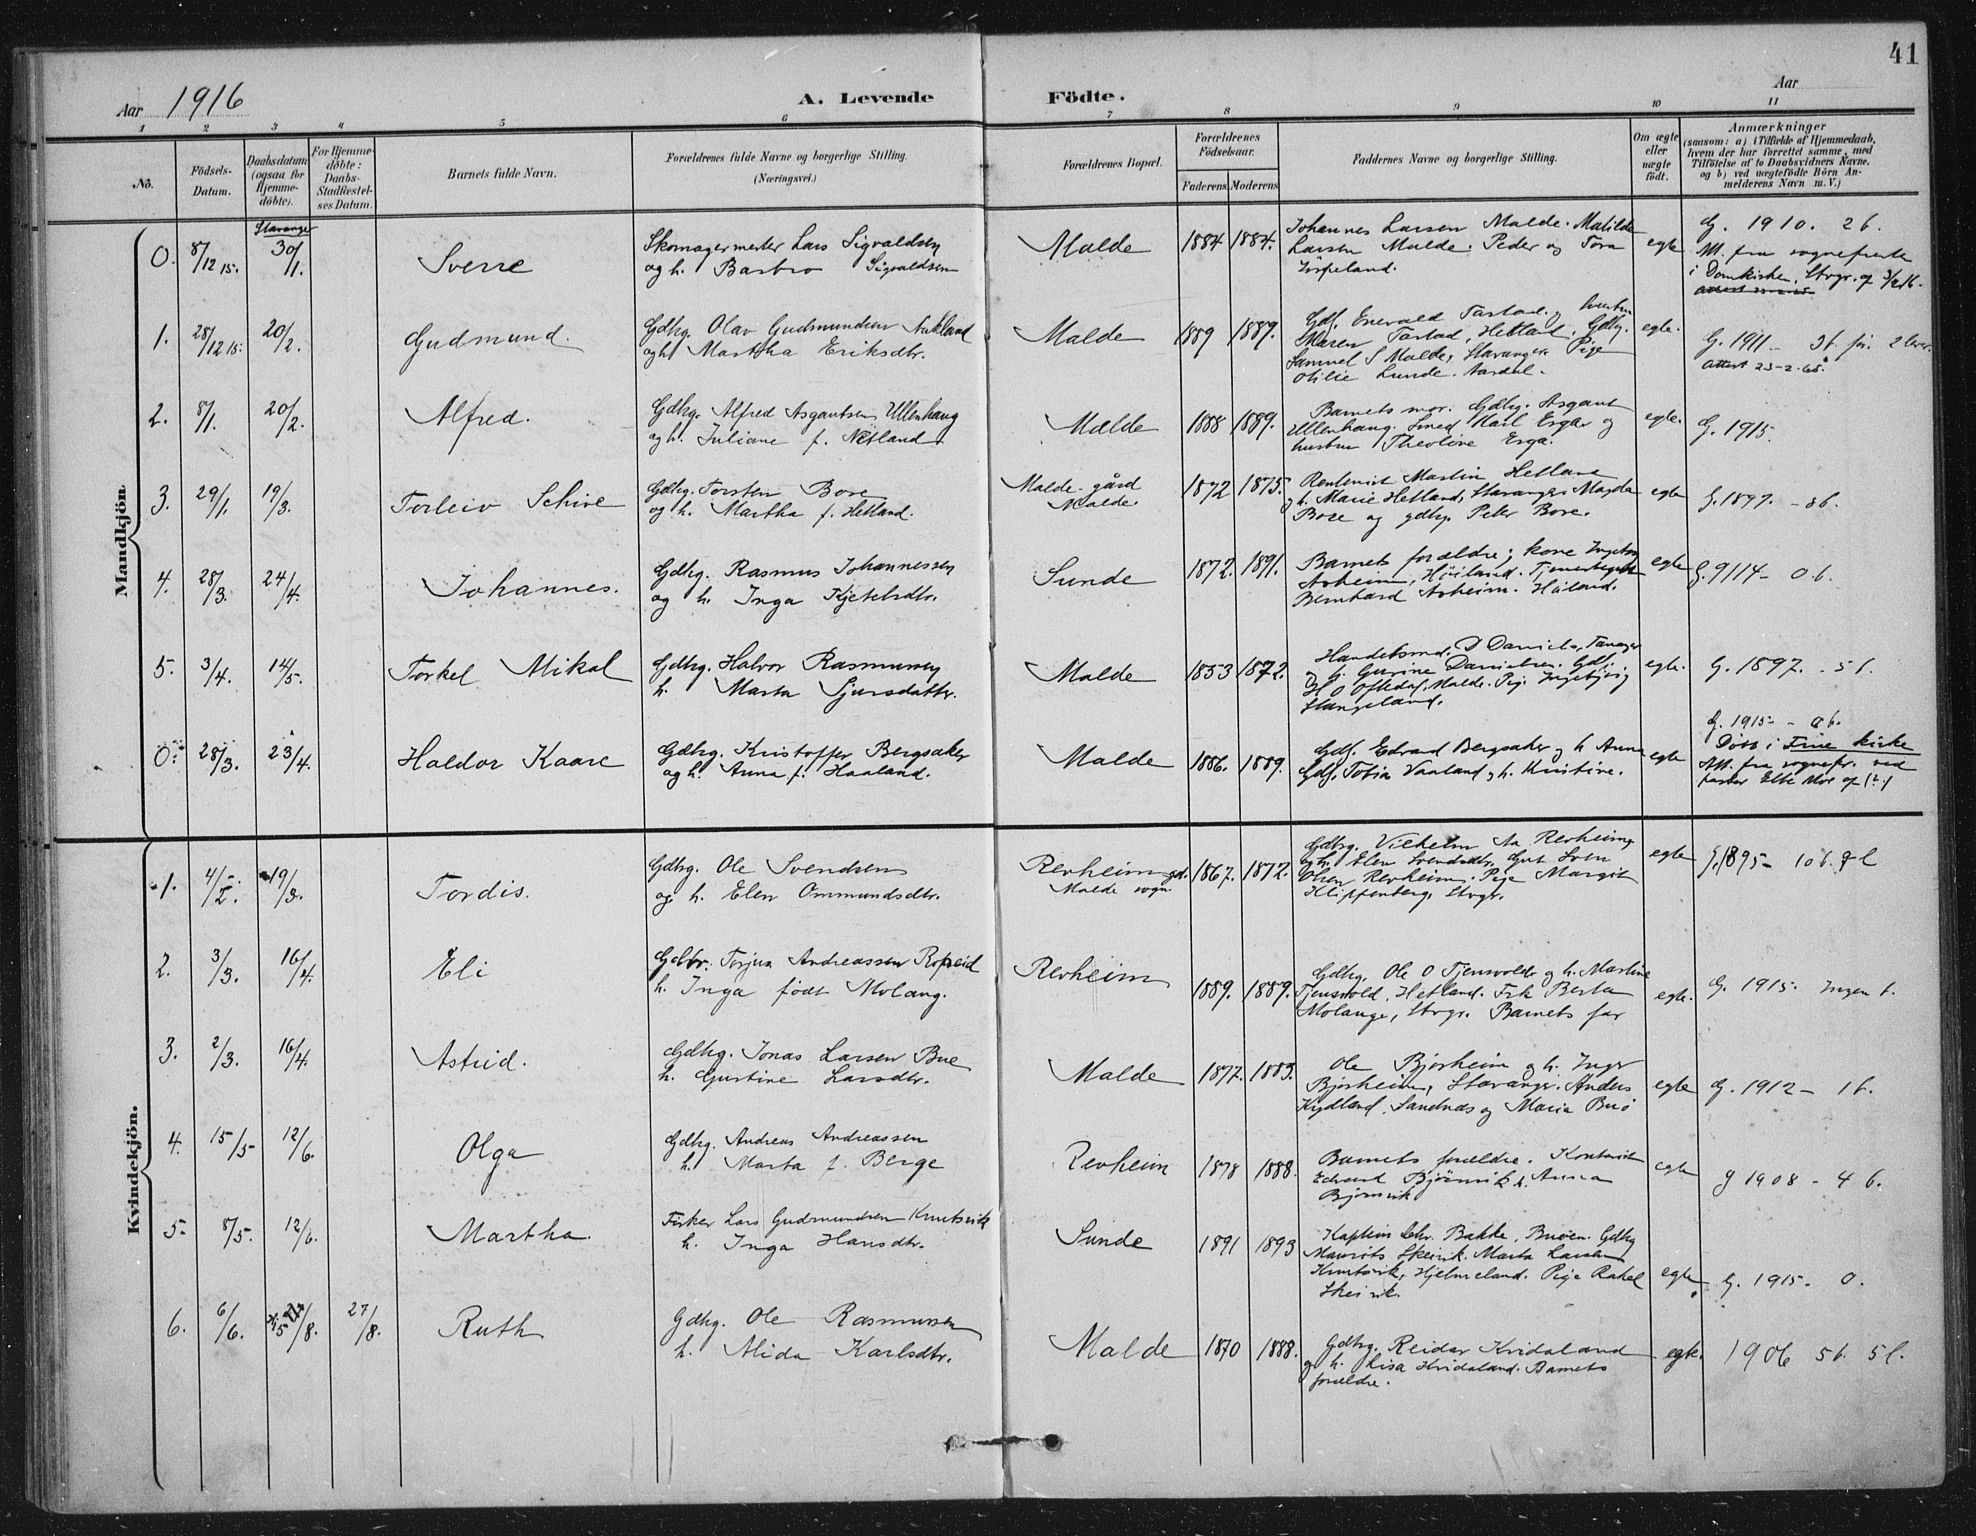 41
Aar 1916
A. Levende Födte.
Aar
1 2 3 4 5 6 7 8 9 10 11
No.
Födsels-Datum.
Daabsdatum (ogsaa for Hjemme-döbte).
For Hjemme-döbte: Daabs-Stadfæstel-ses Datum.
Barnets fulde Navn.
Forældrenes fulde Navne og borgerlige Stilling.
(Næringsvei.)
Forældrenes Bopæl.
Forældrenes Födselsaar.
Faderens. Moderens.
Faddernes Navne og borgerlige Stilling.
Om ægte eller uægte födt.
Anmærkninger
(saasom: a) i Tilfælde af Hjemmedaab, hvem der har forrettet samme, med Tilföielse af to Daabsvidners Navne, og b) ved uægtefödte Börn An-melderens Navn m. V.)
Mandkjön
Stavanger
0. 8/12 15. 30/1. Sverre
Skomagermester Lars Sigvaldsen
og h. Barbro Sigvaldsen
Malde 1884 1884.
Johannes Larsen Malde. Matilde
Larsen Malde. Peder og Tora
Jörpeland.
egte
G. 1910. 2 b.
Att. fra sogneprest
i Domkirken, Stvgr. af 3/2 16.
1. 28/12 15. 20/2. Gudmund.
Gdbg. Olav Gudmundsen Aukland
og h. Martha Eriksdtr.
Malde 1889 1889.
Karen Tastad, Hetland. Gdbg.
Samuel S Malde, Stavanger. Pige
Otilie Lunde. Aardal.
egte.
G. 1911
Attest 23-2-65.
2. 8/1. 20/2. Alfred.
Gdbg. Alfred Asgautsen Ullenhaug
og h. Juliane f. Netland.
Malde 1888 1889.
Barnets mor. Gdbg. Asgaut
Ullenhaug. Smed Karl Erga og
hustru Theoline Erga.
egte.
G. 1915.
3. 29/1. 19/3. Torleiv Schive
Gdbg. Torsten Bore
og h. Martha f. Hetland.
Malde gård
Malde
1872 1875.
Rentenist Martin Hetland
og h. Marie Hetland, Stavanger Magda
Bore og gdbg. Peter Bore.
egte
G. 1897. - 8 b.
4. 28/3. 24/4. Johannes.
Gdbg. Rasmus Johannessen
og h. Inga Kjetelsdtr.
Sunde 1872. 1891.
Barnets forældre; kone Ingeborg
Asheim, Höiland. Tjenestegut
Bernhard Asheim. Höiland.
egte
G. 9114- 0 b.
5. 3/4. 14/5. Torkel Mikal
Gdbg. Halvor Rasmussen
h. Marta Sjursdatter.
Malde 1853 1872.
Handelsmd. D Daniels, Tananger
og h. Gurine Danielsen. Gdbg.
H O Oftedal, Malde. Pige Ingebjörg
Stangeland.
egte.
G. 1897. - 5 b.
0. 28/3. 23/4. Haldor Kaare
Gdbg. Kristoffer Bergsaker
og h. Anna f. Haaland.
Malde 1886. 1889.
Gdb. Edvard Bergsaker og h Anna
Gdb. Tobia Vaaland og h. Kristine.
egte
G. 1915 - 0 b.
Döbt i Frue kirke
Att. fra sognepr. ved
pastor Elbe Moe af (?)
Kvindekjön.
1. 4/2. 19/3. Tordis.
Gdbg. Ole Svendsen
og h. Elen Ommundsdtr.
Revheim gd.
Malde sogn
1867. 1872.
Gdbg. Vilhelm Aa Revheim
og h. Elen Svendsdtr. Gut Sven
Olsen Revheim. Pige Margit
Klippenberg, Stvgr.
egte
G. 1895- 10 b. 9 l
2. 3/3. 16/4. Eli
Gdbr. Torjus Andreassen Ropeid
h. Inga født Molaug.
Revheim 1889. 1889.
Gdbg. Ole O Tjensvold og h. Martine
Tjensvold, Hetland. Frk Berta
Molauge, Stvgr. Barnets far
egte.
G. 1915. Ingen b.
3. 2/3. 16/4. Astrid.
Gdbg. Jonas Larsen Bue
h. Gurtine Larsdtr.
Malde 1877. 1883.
Ole Bjorheim og h. Inger
Bjorheim, Stavanger. Anders
Kydland, Sandnes og Maria Buö
egte
G. 1912 - 1 b.
4. 15/5 12/6. Olga
Gdbg. Andreas Andreassen
h. Marta f. Berge
Revheim 1878 1888.
Barnets forældre. Kontorist
Edvard Björnvik h. Anna
Björnvik
egte
G 1908 - 4 b.
5. 8/5. 12/6. Martha.
Fisker Lars Gudmundsen Knutsvik
h. Inga Hansdtr.
Sunde 1891 1893
Kaptein Chr. Bakke, Buöen. Gdbg
Maurits Skeivik. Marta Larsen
Knutsvik, Hjelmeland. Pige Rakel
Skeivik.
egte
G. 1915 - 0.
6. 6/6. 5/8. 27/8. Ruth
Gdbg. Ole Rasmussen
h. Alida Karlsdtr.
Malde 1870 1888.
Gdbg. Reidar Kvidaland
og h. Lisa Kvidaland. Barnets
forældre.
egte.
1906 5 b. 5 l.